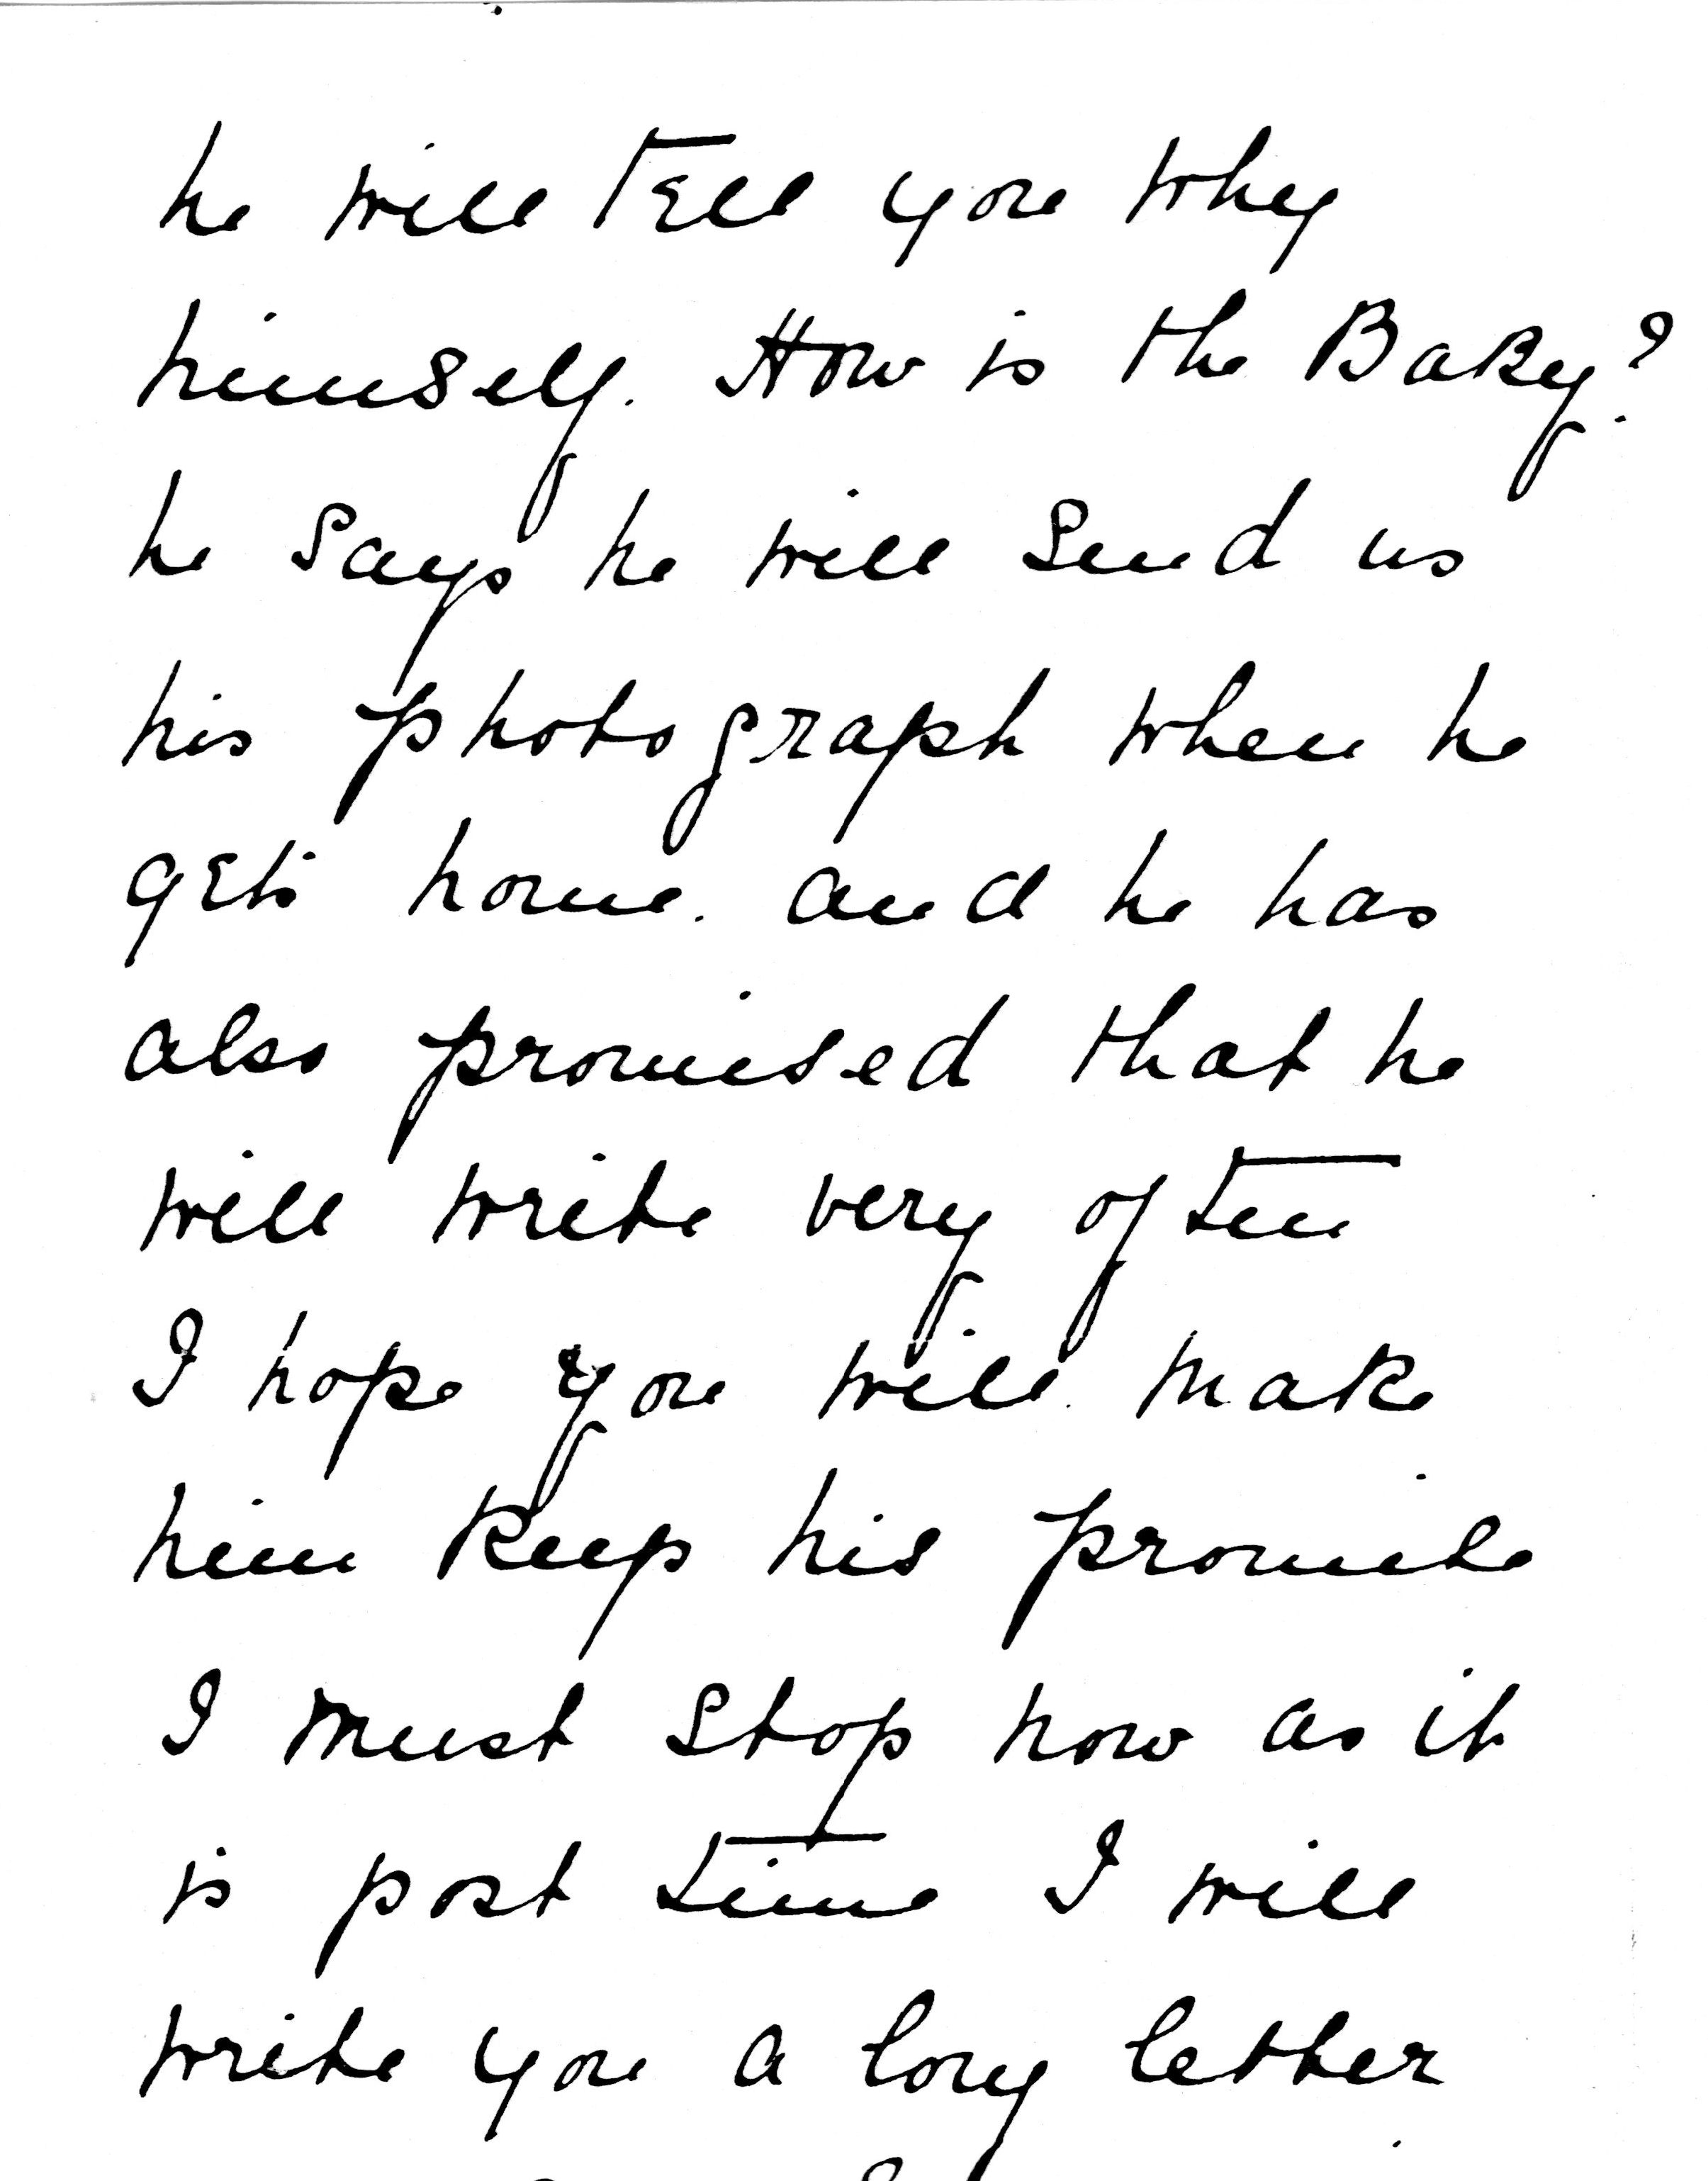 he will tell you why
himself. How is the Baby?
he says he will send us
his photograph when he
gets home. and he has
also promised that he
will write very often
I hope you will make
him keep his promise
I must stop now as it
is post time I will
write you a long letter